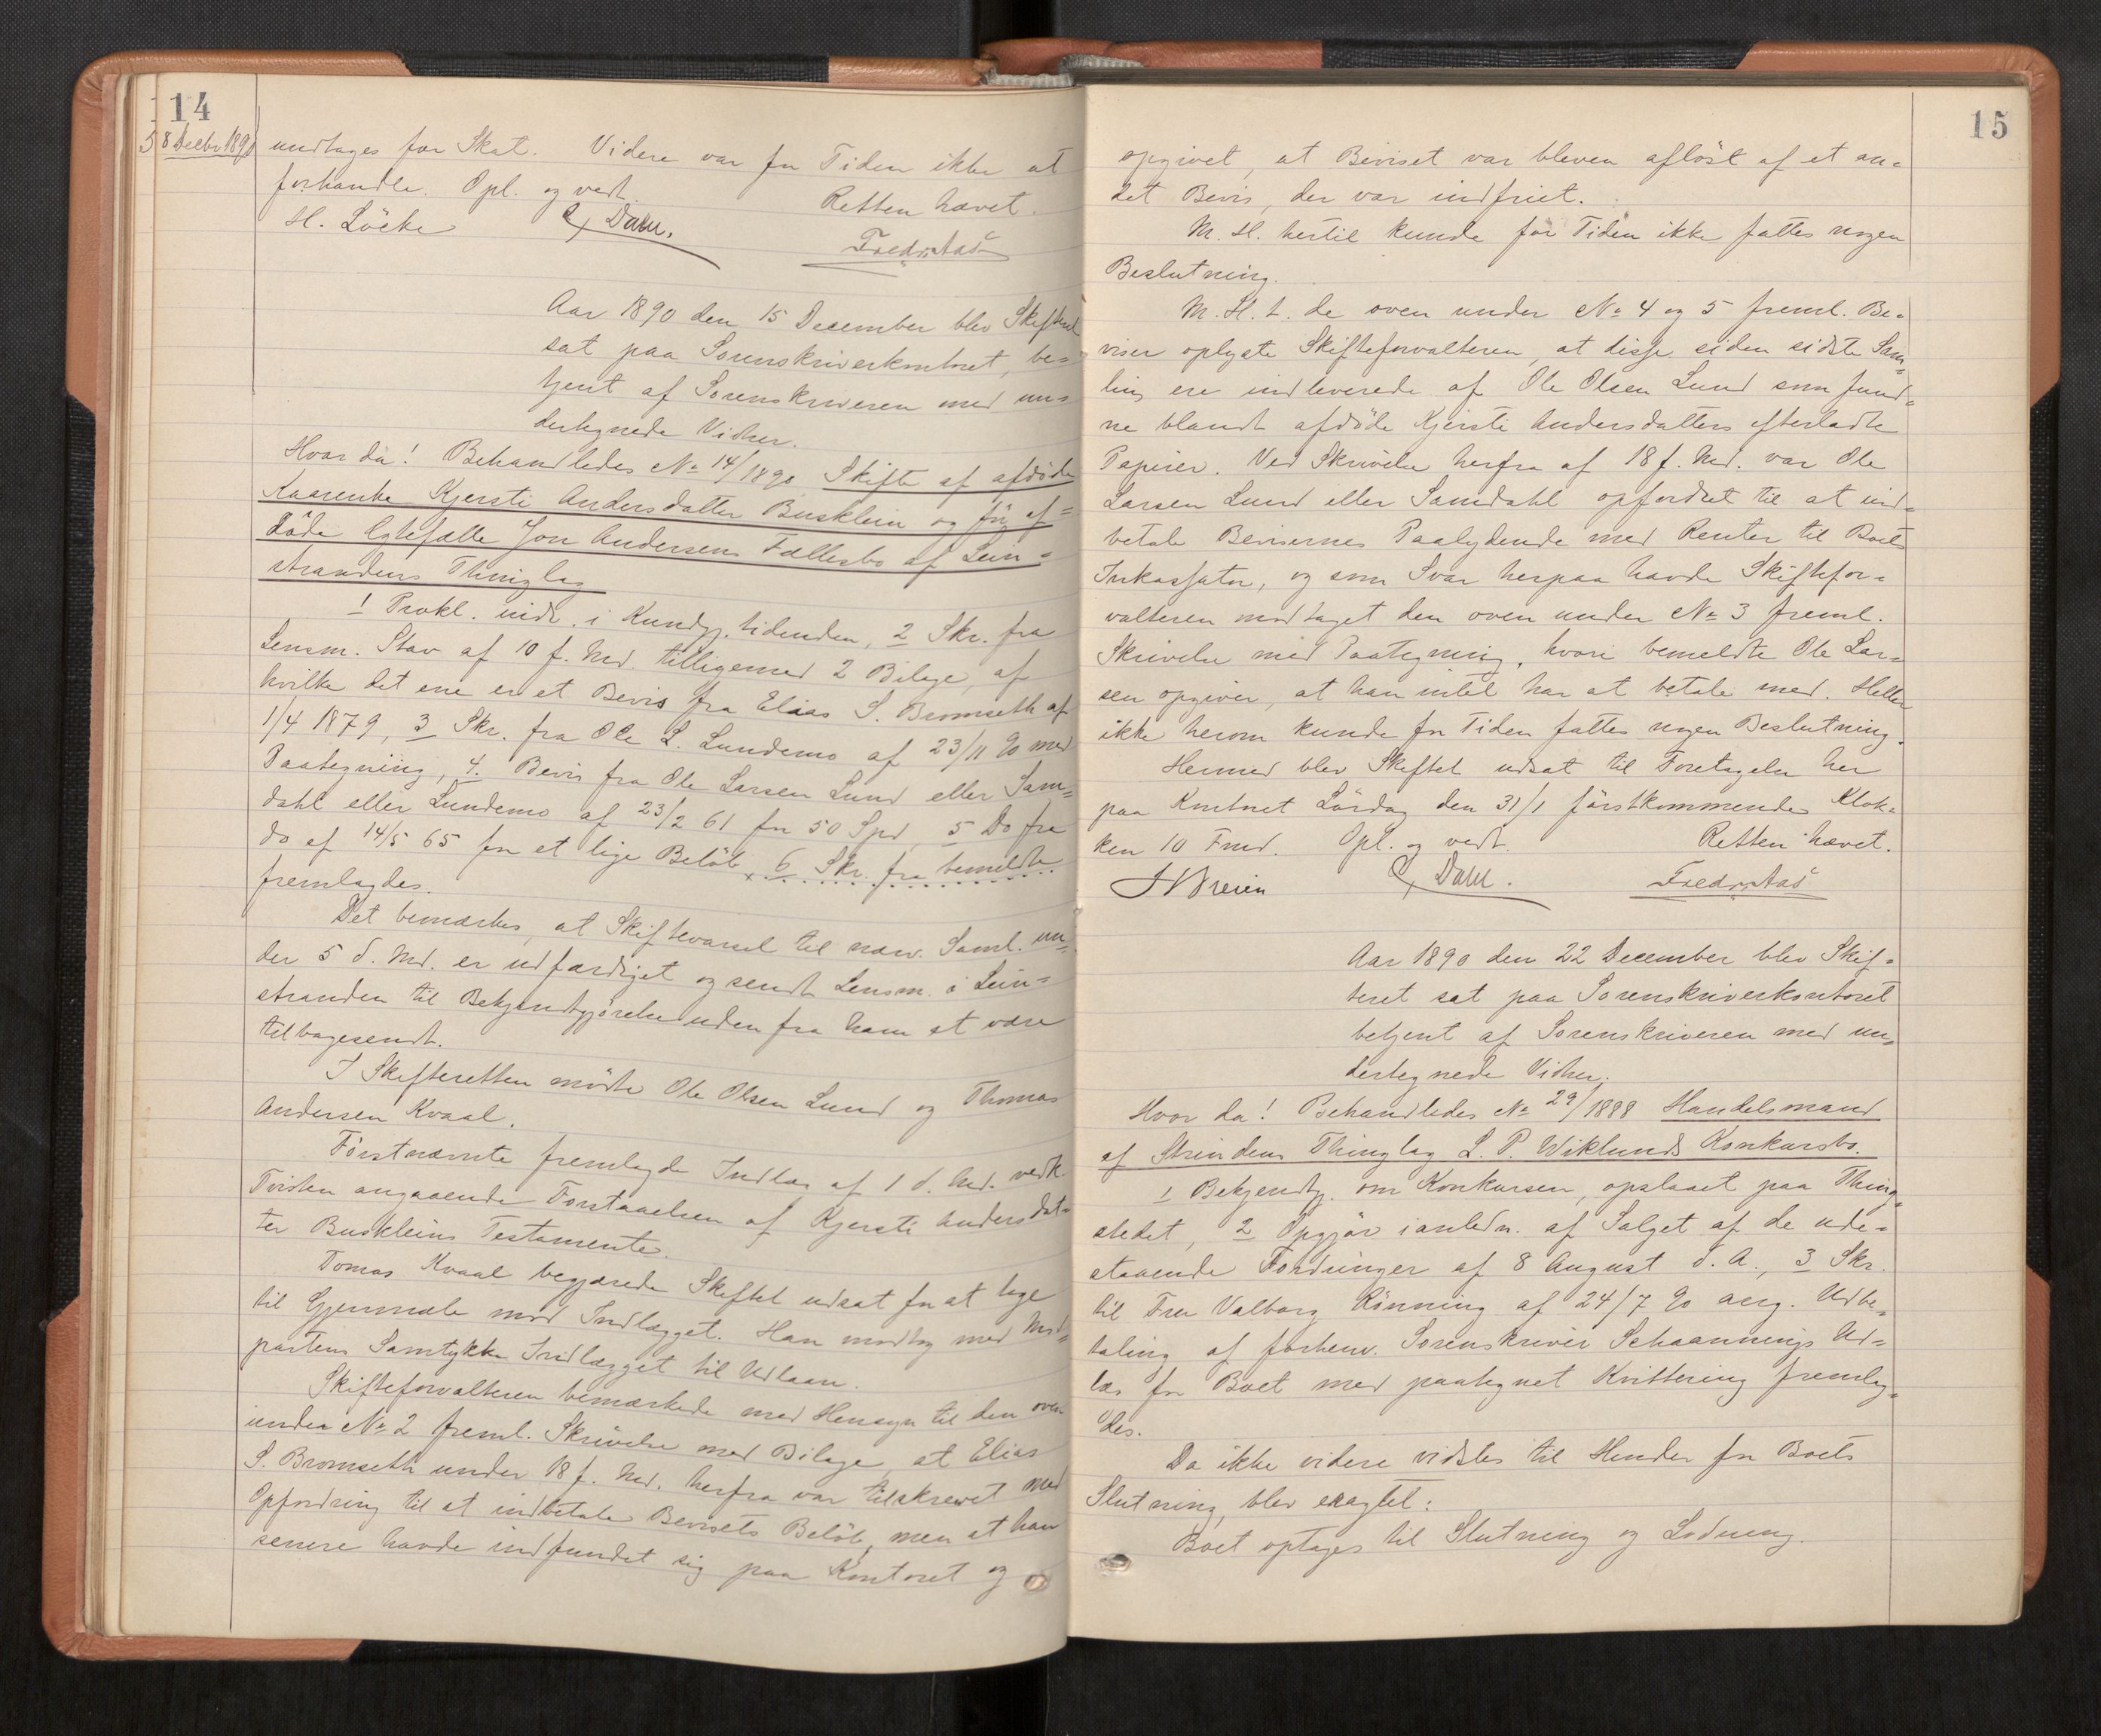 14
8 Decbr 1890
undtages for Skat. Videre var for Tiden ikke at
forhandle. Opl. og vedt. Retten hævet.
H. Löcke Dahl.
Aar 1890 den 15 December blev Skifteret
sat paa Sorenskriverkontoret, be-
tjent af Sorenskriveren med un-
dertegnede Vidner.
Hvor da! Behandledes No 14/1890 Skifte af afdöde
Kaarenke Kjersti Andersdatter Busklein og för af-
döde Egtefælle Jon Andersens Fællesbo af Lein-
strandens Thinglag
1 Prokl. indr. i Kundg. tidenden, 2 Skr. fra
Lensm. Stav af 10 f. Md. tilligemed 2 Bilage, af
hvilke det ene er et Bevis fra Elias S. Bromseth af
1/4 1879, 3 Skr. fra Ole L. Lundemo af 23/11 90 med
Paategning, 4. Bevis fra Ole Larsen Lund eller Sam-
dahl eller Lundemo af 23/2 61 for 50 Spd, 5 Do fra
do af 14/5 65 for et lige Belöb, 6 Skr. fra bemeldte
fremlagdes.
Det bemærkes, at Skiftevarsel til nærv. Saml. un-
der 5 d. Md. er udfærdiget og sendt Lensm. i Lein-
stranden til Bekjendtgjörelse uden fra ham at være
tilbagesendt.
I Skifteretten mödte Ole Olsen Lund og Thomas
Andersen Kvaal.
Förstnævnte fremlagde Indlæg af 1 d. Md. vedk.
Tvisten angaaende Forstaaelsen af Kjersti Andersdat-
ter Buskleins Testamente.
Tomas Kvaal begjærede Skiftet udsat for at tage
til Gjenmæle mod Indlægget. Han modtog med Mod-
partens Samtykke Indlægget til Udlaan.
Skifteforvalteren bemærkede med Hensyn til den oven
under No 2 freml. Skrivelse med Bilage, at Elias
S. Bromseth under 18 f. Md. herfra var tilskrevet med
Opfordring til at indbetale Bevisets Belöb, men at han
senere havde indfundet sig paa Kontoret og
15
opgivet, at Beviset var bleven aflöst af et an-
det Bevis, der var indfriet.
M. H. hertil kunde for Tiden ikke fattes nogen
Beslutning.
M. H. t. de oven under No 4 og 5 freml. Be-
viser oplyste Skifteforvalteren, at disse siden sidste Sam-
ling ere indleverede af Ole Olsen Lund som fund-
ne blandt afdöde Kjersti Andersdatters efterladte
Papirer. Ved Skrivelse herfra af 18 f. Md. var Ole
Larsen Lund eller Samdahl opfordret til at ind-
betale Bevisernes Paalydende med Renter til Boets
Inkassator, og som Svar herpaa havde Skiftefor-
valteren modtaget den oven under No 3 freml.
Skrivelse med Paategning, hvori bemeldte Ole Lar-
sen opgiver, at han intet har at betale med. Heller
ikke herom kunde for Tiden fattes nogen Beslutning.
Hermed blev Skiftet udsat til Foretagelse her
paa Kontoret Lördag den 31/1 förstkommende Klok-
ken 10 Fmd. Opl. og vedt. Retten hævet.
Dahl.
Aar 1890 den 22 December blev Skif-
teret sat paa Sorenskriverkontoret
betjent af Sorenskriveren med un-
dertegnede Vidner.
Hvor da! Behandledes No 29/1888 Handelsmand
af Strindens Thinglag L. P. Wiklunds Konkursbo.
1 Bekjendtg. om Konkursen, opslaaet paa Thing-
stedet, 2 Opgjör i anledn. af Salget af de ude-
staaende Fordringer af 8 August d. A., 3 Skr.
til Fru Valborg Rönning af 24/7 90 ang. Udbe-
taling af forhenv. Sorenskriver Schaannings Ud-
læg for Boet med paategnet Kvittering fremlag-
des.
Da ikke videre vidstes til Hinder for Boets
Slutning, blev eragtet:
Boet optages til Slutning og Lodning.